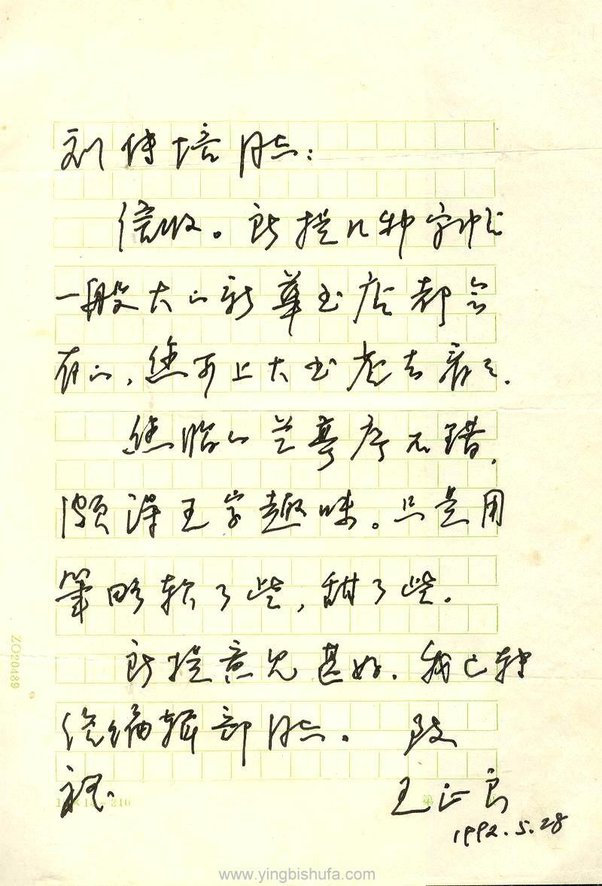 刘传培同志：
信收。所提几种字帖
一般大的新华书店都会
有的，您可上大书店去看看。
您临的兰亭序不错，
颇得王字趣味。只是用
笔略软了些，甜了些。
所提意见甚好，我已转
给编辑部同志。 致
礼
王正良
1992.5.28
ZG20489
www.yingbishufa.com